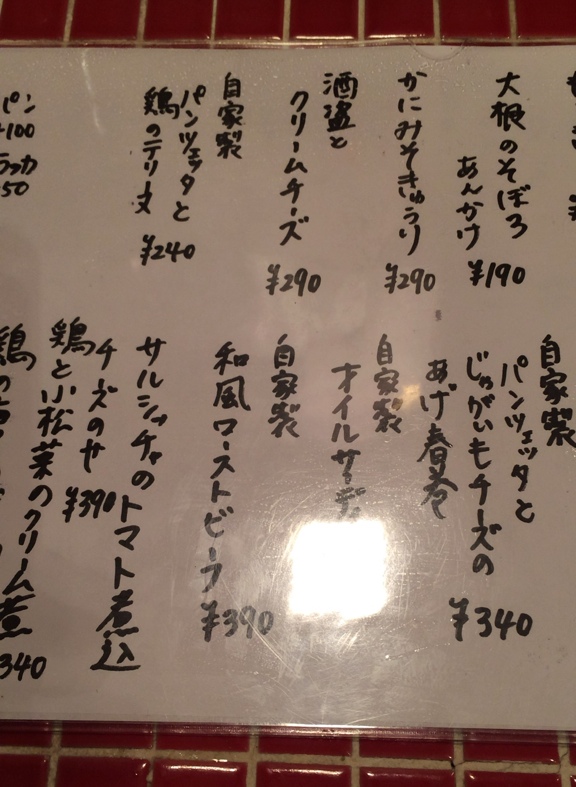 大根のそぼろ
あんかけ
¥190
かにみそきゅうり
¥290
酒盗と
クリームチーズ
¥290
自家製
パンツェッタと
鶏のテリーヌ
¥240
パン
+100
50
自家製
パンツェッタと
じゃがいもチーズの
あげ春巻
¥340
自家製
オイルサーディ
自家製
和風ローストビーフ
¥390
サルシッチャのトマト煮込
チーズのせ
¥390
鶏と小松菜のクリーム煮
340
鶏の